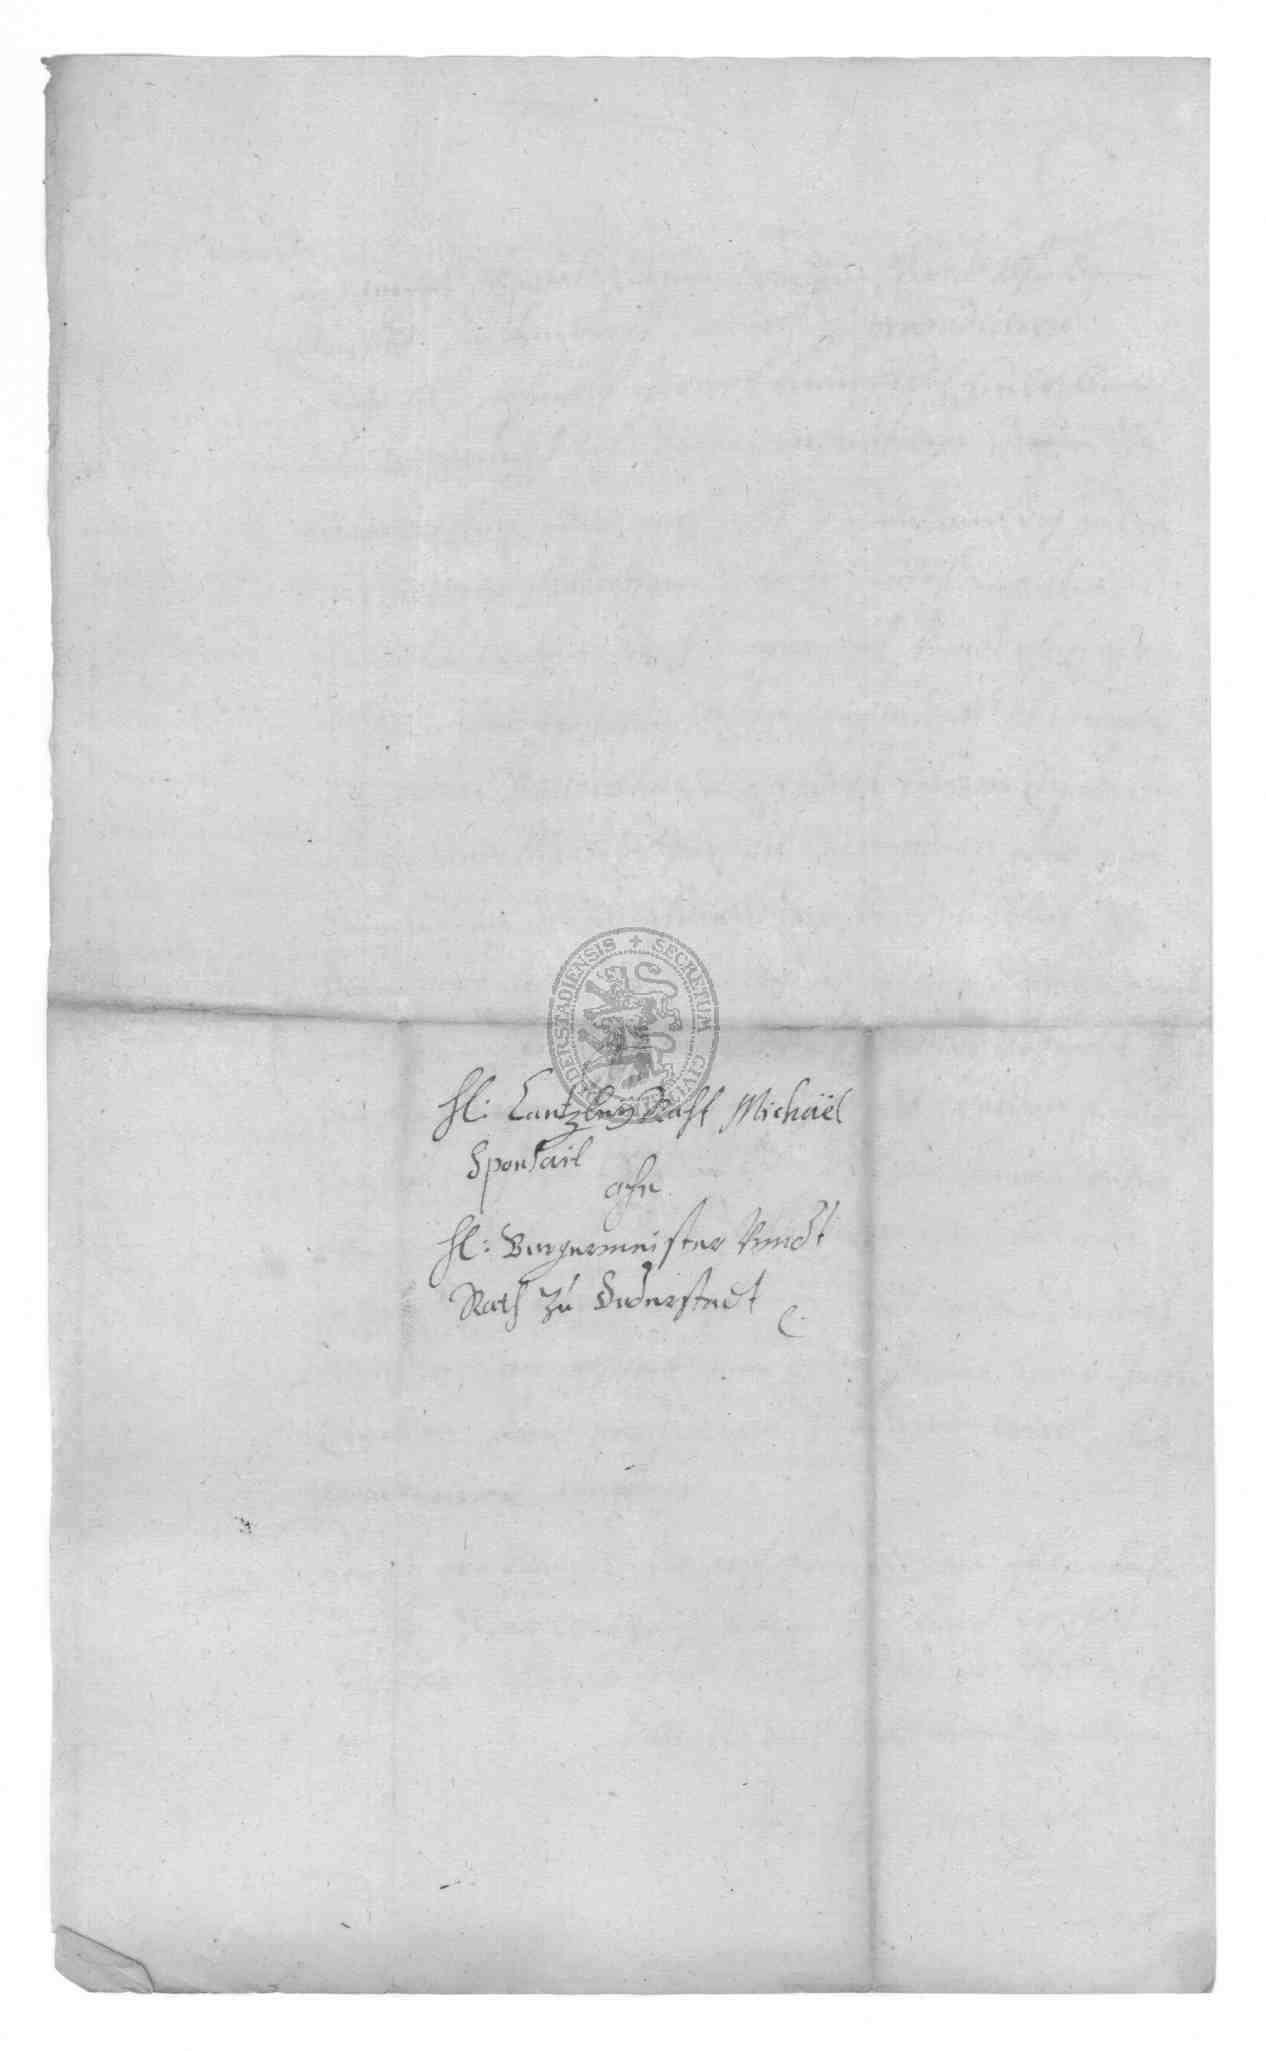 SECRETUM CIVI DERSTADIENSIS
H: Cantzley Raht Michaël
Sponsail
ahn
H: Burgermeister Vnndt
Rath zú Duderstadt